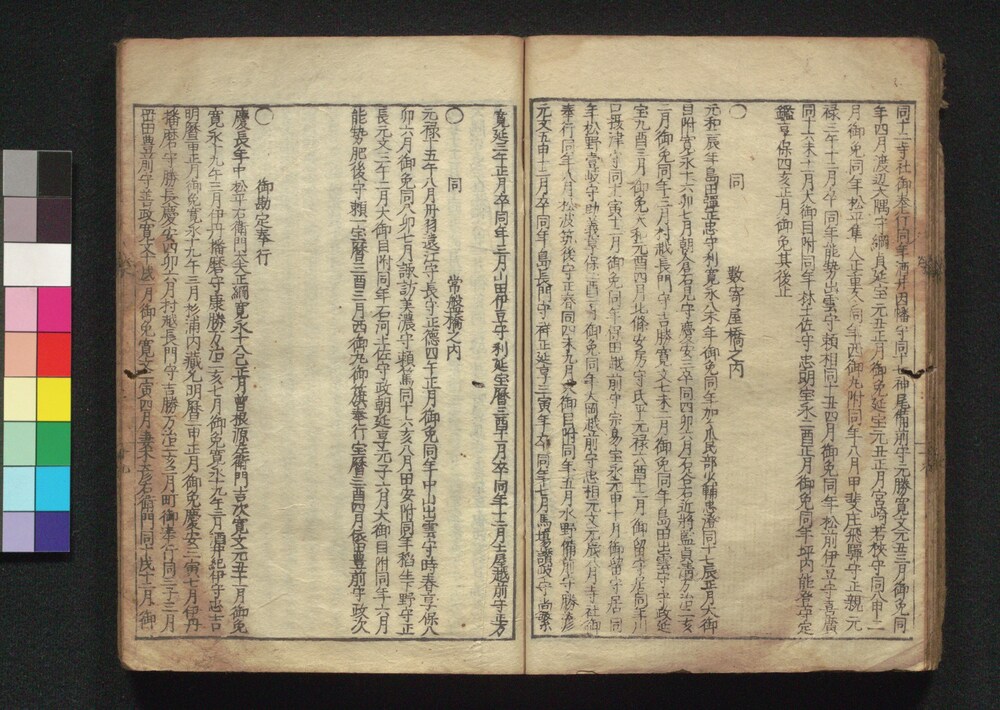 同十二寺社御奉行同年酒井因幡守同十七神尾備前守元勝寛文元丑三月御免同
年四月渡辺大隅守綱貞延宝元丑正月御免延宝元丑正月宮崎若狭守同八申二
月御免同年松平隼人正重大同年西御丸附同年八月甲斐庄飛騨守正親元
禄三年十二月卒同年能勢出雲守頼相同十丑四月御免同年松前伊豆守嘉広
同十六未十一月大御目附同年林土佐守忠朗宝永二酉正月御免同年坪内能登守定
鑑享保四亥正月御免其後止
○ 同 数寄屋橋之内
元和二辰年島田弾正忠守利寛永八未年御免同年加々爪民部少輔忠澄同十七辰正月大御
目附寛永十六卯七月朝倉石見守慶安三卒同四卯六月石谷右近将監貞清万治二亥
二月御免同年三月村越長門守吉勝寛文七未二月御免同年島田出雲守守政延
宝九酉三月御免天和元酉四月北條安房守氏平元禄六酉十二月御留守居同年川
口摂津守同十一寅十二月御免同年保田越前守宗易宝永元申十月御留守居同
年松野壱岐守助義享保二酉二月御免同年大岡越前守忠相元文元辰八月寺社御
奉行同年八月松波筑後守正春同四未九月大御目附同年五月水野備前守勝彦
元文五申十二月卒同年島長門守祥正延享三寅年卒同年七月馬場讃岐守尚繁
寛延三午正月卒同年三月山田伊豆守利延宝暦三酉十一月卒同年十二月土屋越前守正方
○ 同 常盤橋之内
元禄十五午八月丹羽遠江守長守正徳四午正月御免同年中山出雲守時春享保八
卯六月御免同八卯七月諏訪美濃守頼篤同十六亥八月田安附同年稲生下野守正
長元文三午二月大御目附同年石河土佐守政朝延享元子六月大御目附同年六月
能勢肥後守頼一宝暦三酉三月西御丸御籏奉行宝暦三酉四月依田豊前守政次
○ 御勘定奉行
慶長年中松平右衛門大夫正綱寛永十八巳正月曽根源左衛門吉次寛文元丑十一月御免
寛永十九午三月伊丹播磨守康勝万治二亥七月御免寛永十九午三月酒井紀伊守忠吉
明暦二申正月御免寛永十九午三月杉浦内蔵允明暦二申正月御免慶安三寅七月伊丹
播磨守勝長慶安四卯六月村越長門守吉勝万治二亥三月町御奉行同三子三月
岡田豊前守善政寛文十戌二月御免寛文二寅四月妻木彦右衛門同十戌十二月御